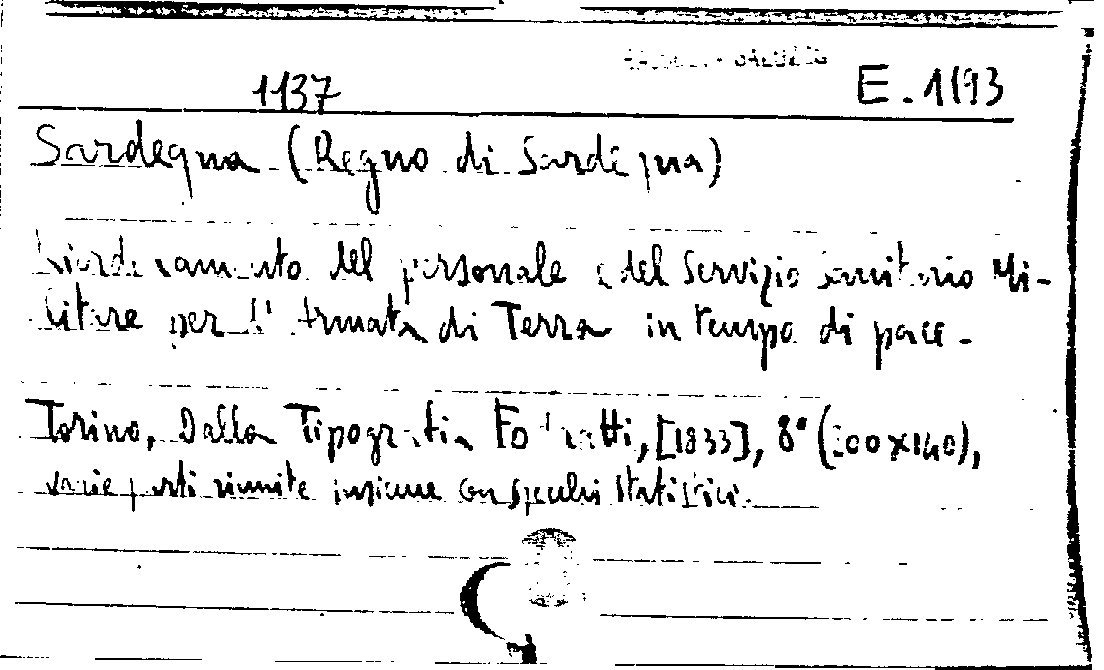 1137 E. 1193
Sardegna (Regno di Sardegna)
Riordinamento del personale e del Servizio Sanitario Mi-
litare per l'Armata di Terra in tempo di pace.
Torino, Dalla Tipografia Fodratti, [1833], 8° (200x140),
varie parti riunite insieme con specchi statistici.